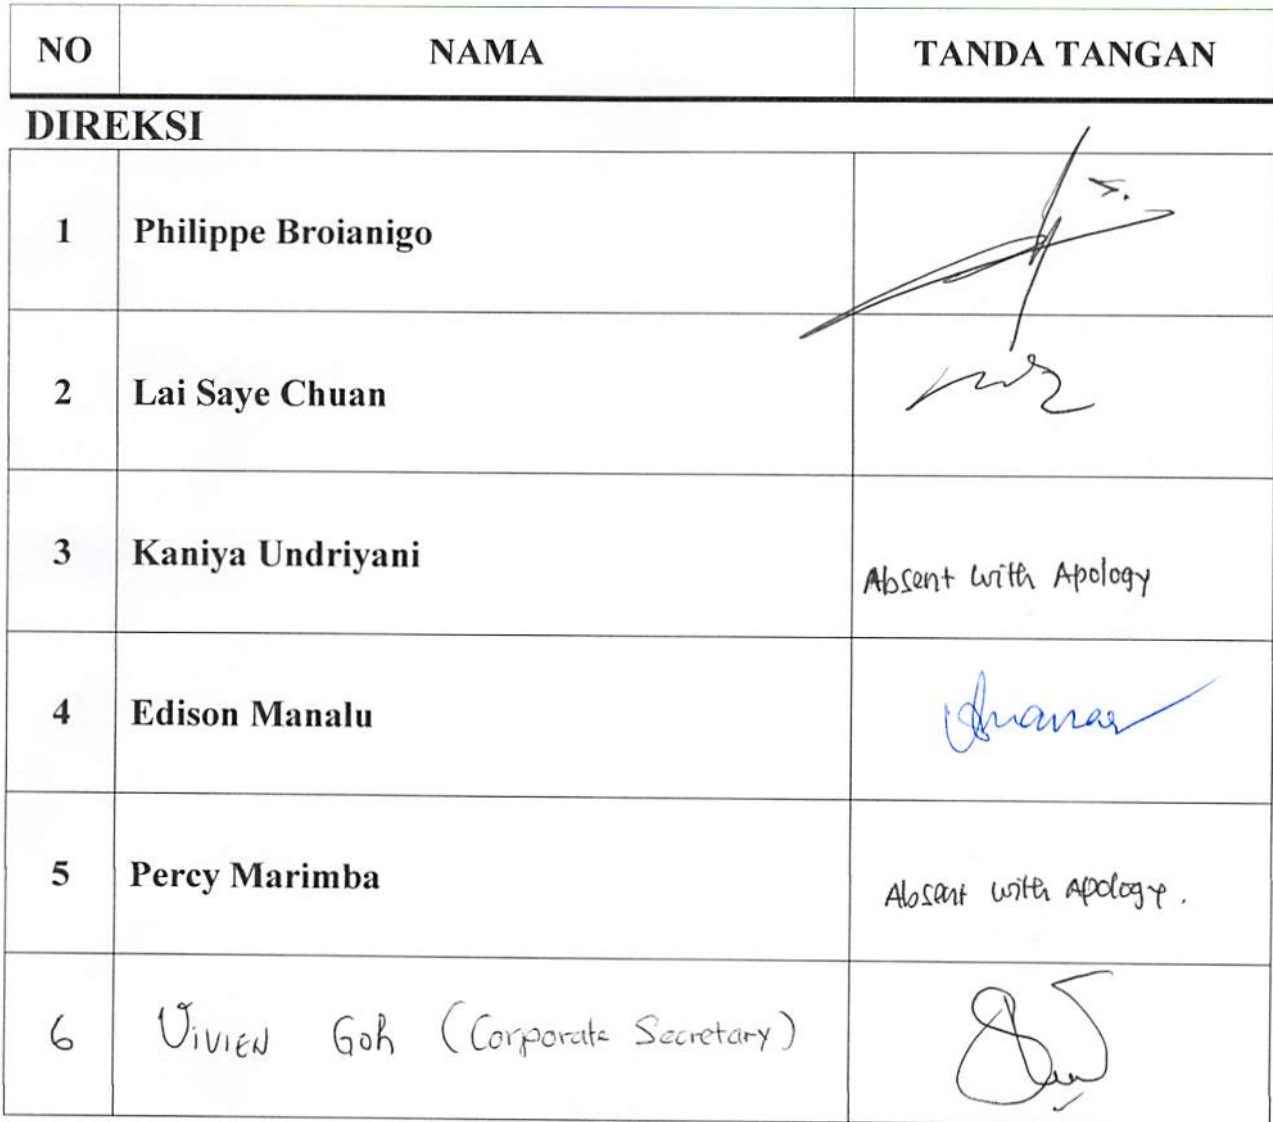 NO NAMA TANDA TANGAN
DIREKSI
1 Philippe Broianigo
2 Lai Saye Chuan
3 Kaniya Undriyani Absent with Apology
4 Edison Manalu
5 Percy Marimba Absent with Apology.
6 Vivien Goh (Corporate Secretary)